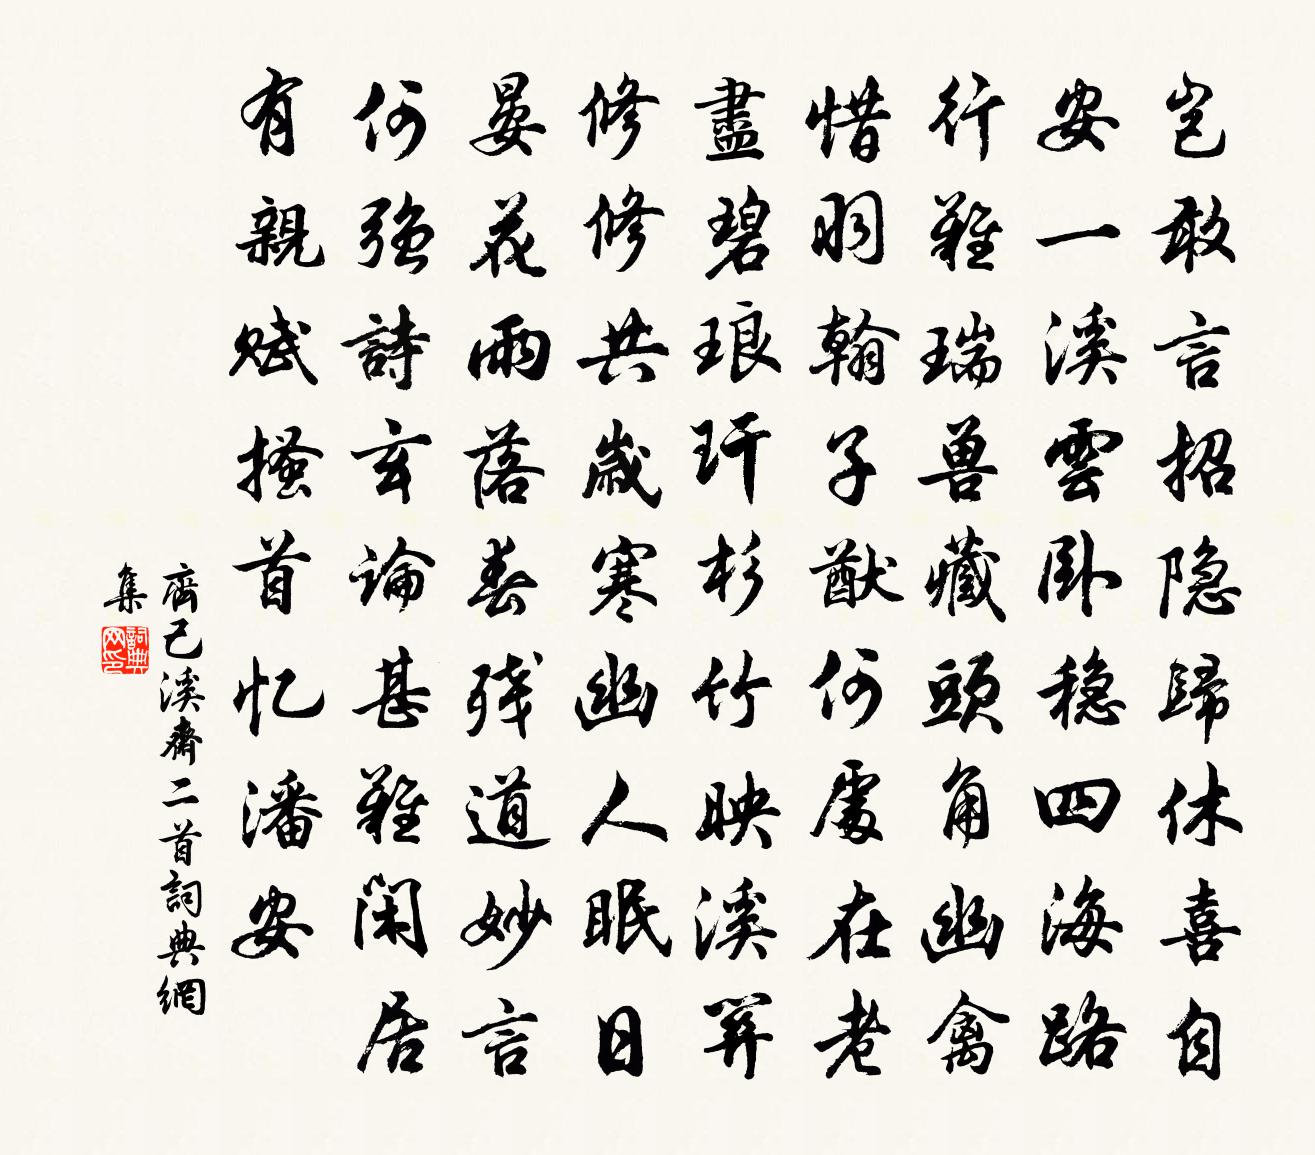 岂敢言招隐歸休喜自
安一溪雲卧穏四海路
行難瑞兽藏頭角幽禽
惜羽翰子猷何處在老
盡碧琅玕杉竹映溪關
修修共歲寒幽人眠日
晏花雨落春残道妙言
何强詩玄論甚難閑居
有親赋搔首忆潘安
齊己溪齋二首詞典網
集
詞典网印